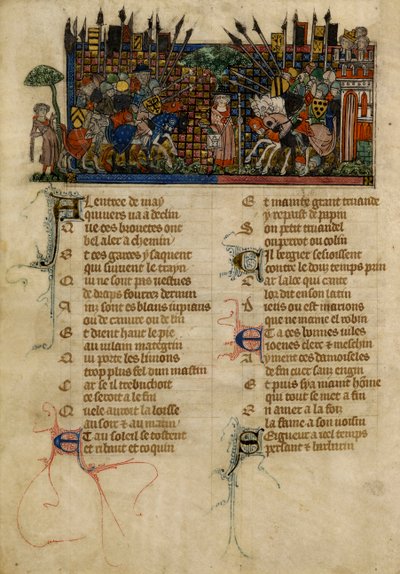 A Lentree de may
Q uyvers va a declin
Q ue ces brouetes ont
bel aler a chemin
E t ces garces y saquent
qui suivent le trayn
Q ui ne sont pas vestues
de draps fourres dermin
A ins sont es blans surplaus
ou de canure ou de lin
E t dient haut le pie
au vilain maregrin
Q ui porte les limons
trop plus fel dun mastin
C ar se il trebuchoit
ce seroit a le fin
Q uele auroit la loisse
au soir & au matin
E T au soleil se rostent
et ribaut et coquin
E t mainte grant truande
y repust de papin
S on petit truandel
ou perrot ou colin
C Il bergier sesioissent
contre le douz temps prin
C ar laloe qui cante
lor dit en son latin
V eus ou est marions
que ne maine el robin
E T a ces bonnes viles
Joenes clerc & meschin
A yment ces damoiseles
de fin cuer sans engin
E t puis sya maint home
qui tout se met a fin
N avier a la foiz
la fame a son voisin
S Eigneur a icel temps
persant & barbarin